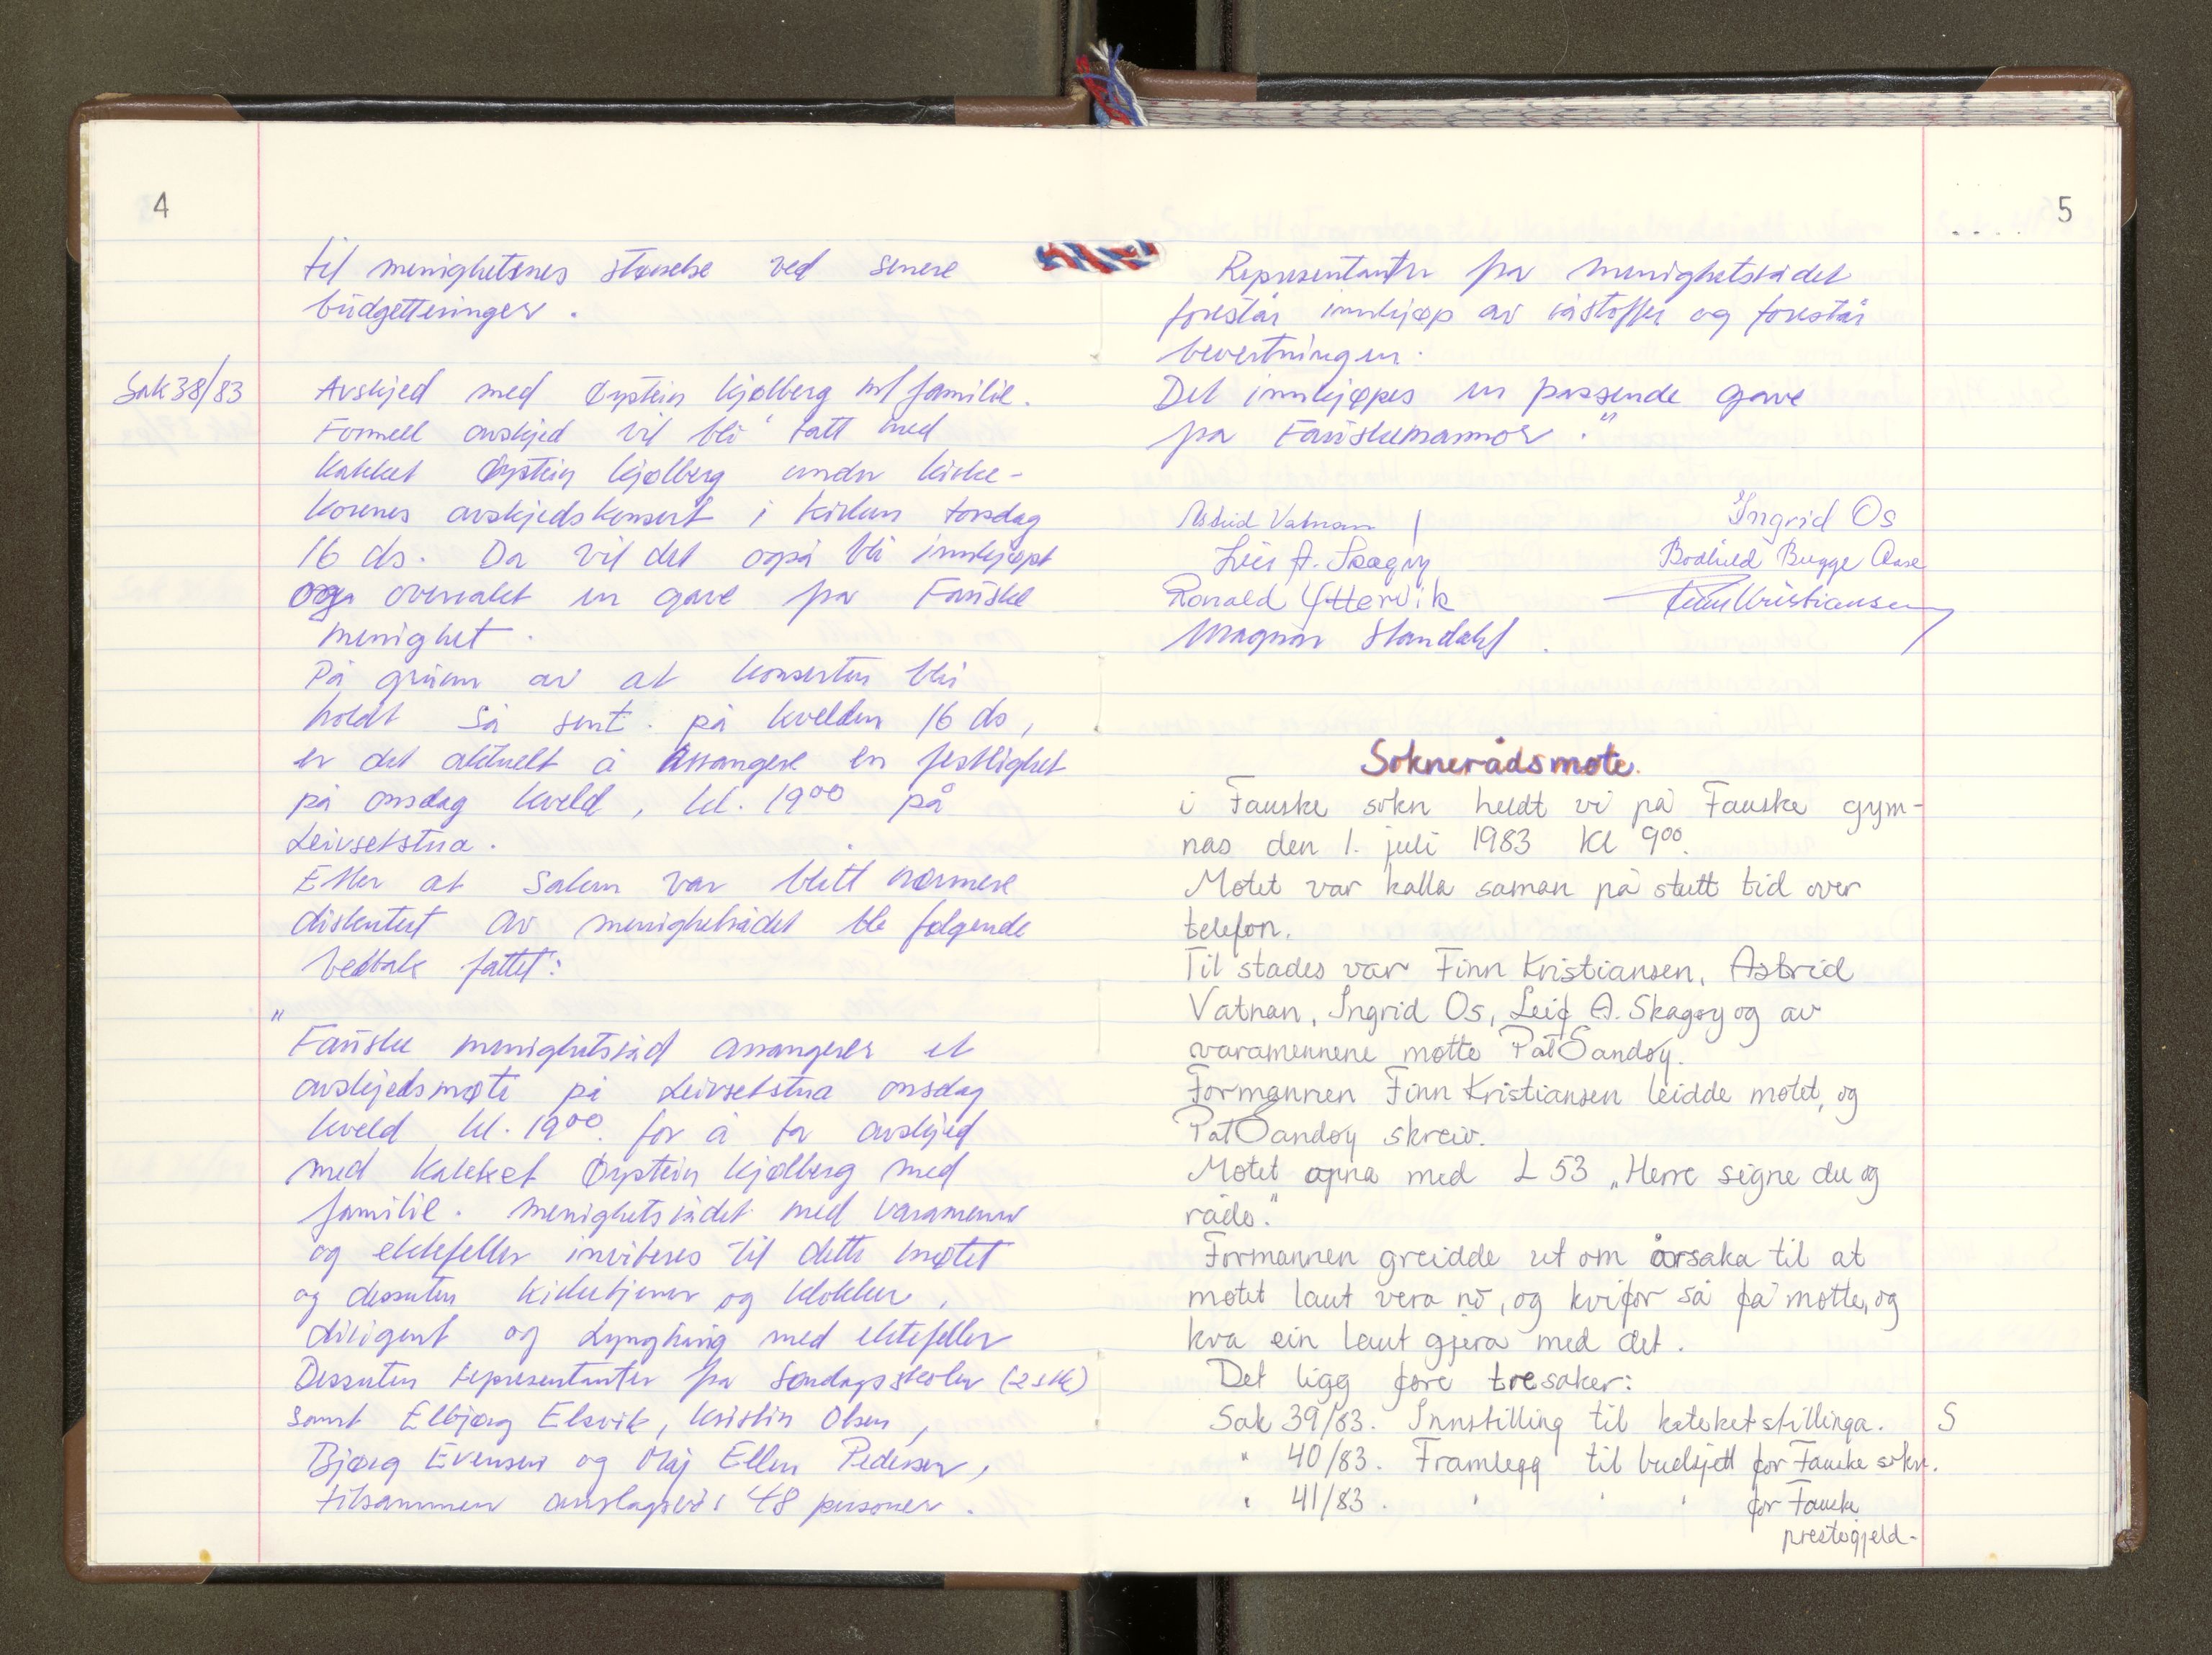 4
til menighetenes størrelse ved senere
budgetteringer.
Sak 38/83
Avskjed med Øystein Kjølberg m/familie.
Formell avskjed vil bli tatt med
kateket Øystein Kjølberg under kirke-
korenes avskjedskonsert i kirken torsdag
16 ds. Da vil det også bli innkjøpt
og overrakt en gave fra Fauske
menighet.
På grunn av at konserten blir
holdt så sent på kvelden 16 ds,
er det aktuelt å arrangere en festlighet
på onsdag kveld, kl. 19⁰⁰ på
Leivsetstua.
Etter at saken var blitt nærmere
diskutert av menighetsrådet ble følgende
vedtak fattet:
"Fauske menighetsråd arrangerer et
avskjedsmøte på Leivsetstua onsdag
kveld kl. 19⁰⁰ for å ta avskjed
med kateket Øystein Kjølberg med
familie. Menighetsrådet med varamenn
og ektefeller inviteres til dette møtet
og dessuten kirketjener og klokker,
dirigent og Lynghaug med ektefeller
Dessuten representanter fra søndagsskolen (2 stk)
samt Elbjørg Elsvik, Kristin Olsen,
Bjørg Evensen og Maj Ellen Pedersen,
tilsammen anslagsvis 48 personer.
5
Representanter fra menighetsrådet
forestår innkjøp av råstoffer og forestår
bevertningen.
Det innkjøpes en passende gave
fra Fauskemarmor."
Astrid Vatnan
Ingrid Os
Leif A. Skagøy
Bodhild Bugge Aase
Ronald Yttervik
Finn Kristiansen
Magnar Standahl.
Soknerådsmøte.
i Fauske sokn heldt vi på Fauske gym-
nas den 1. juli 1983 Kl 9⁰⁰.
Møtet var kalla saman på stutt tid over
telefon.
Til stades var Finn Kristiansen, Astrid
Vatnan, Ingrid Os, Leif A. Skagøy og av
varamennene møtte Pat Sandøy.
Formannen Finn Kristiansen leidde møtet, og
Pat Sandøy skreiv.
Møtet opna med L 53 „Herre signe du og
råde."
Formannen greidde ut om årsaka til at
møtet laut vera nò, og kvifor så få møtte, og
kva ein laut gjera med det.
Det ligg føre tre saker:
Sak 39/83. Innstilling til kateketstillinga. S
" 40/83. Framlegg til budsjett for Fauske sokn.
" 41/83. " " " for Fauske
prestegjeld-